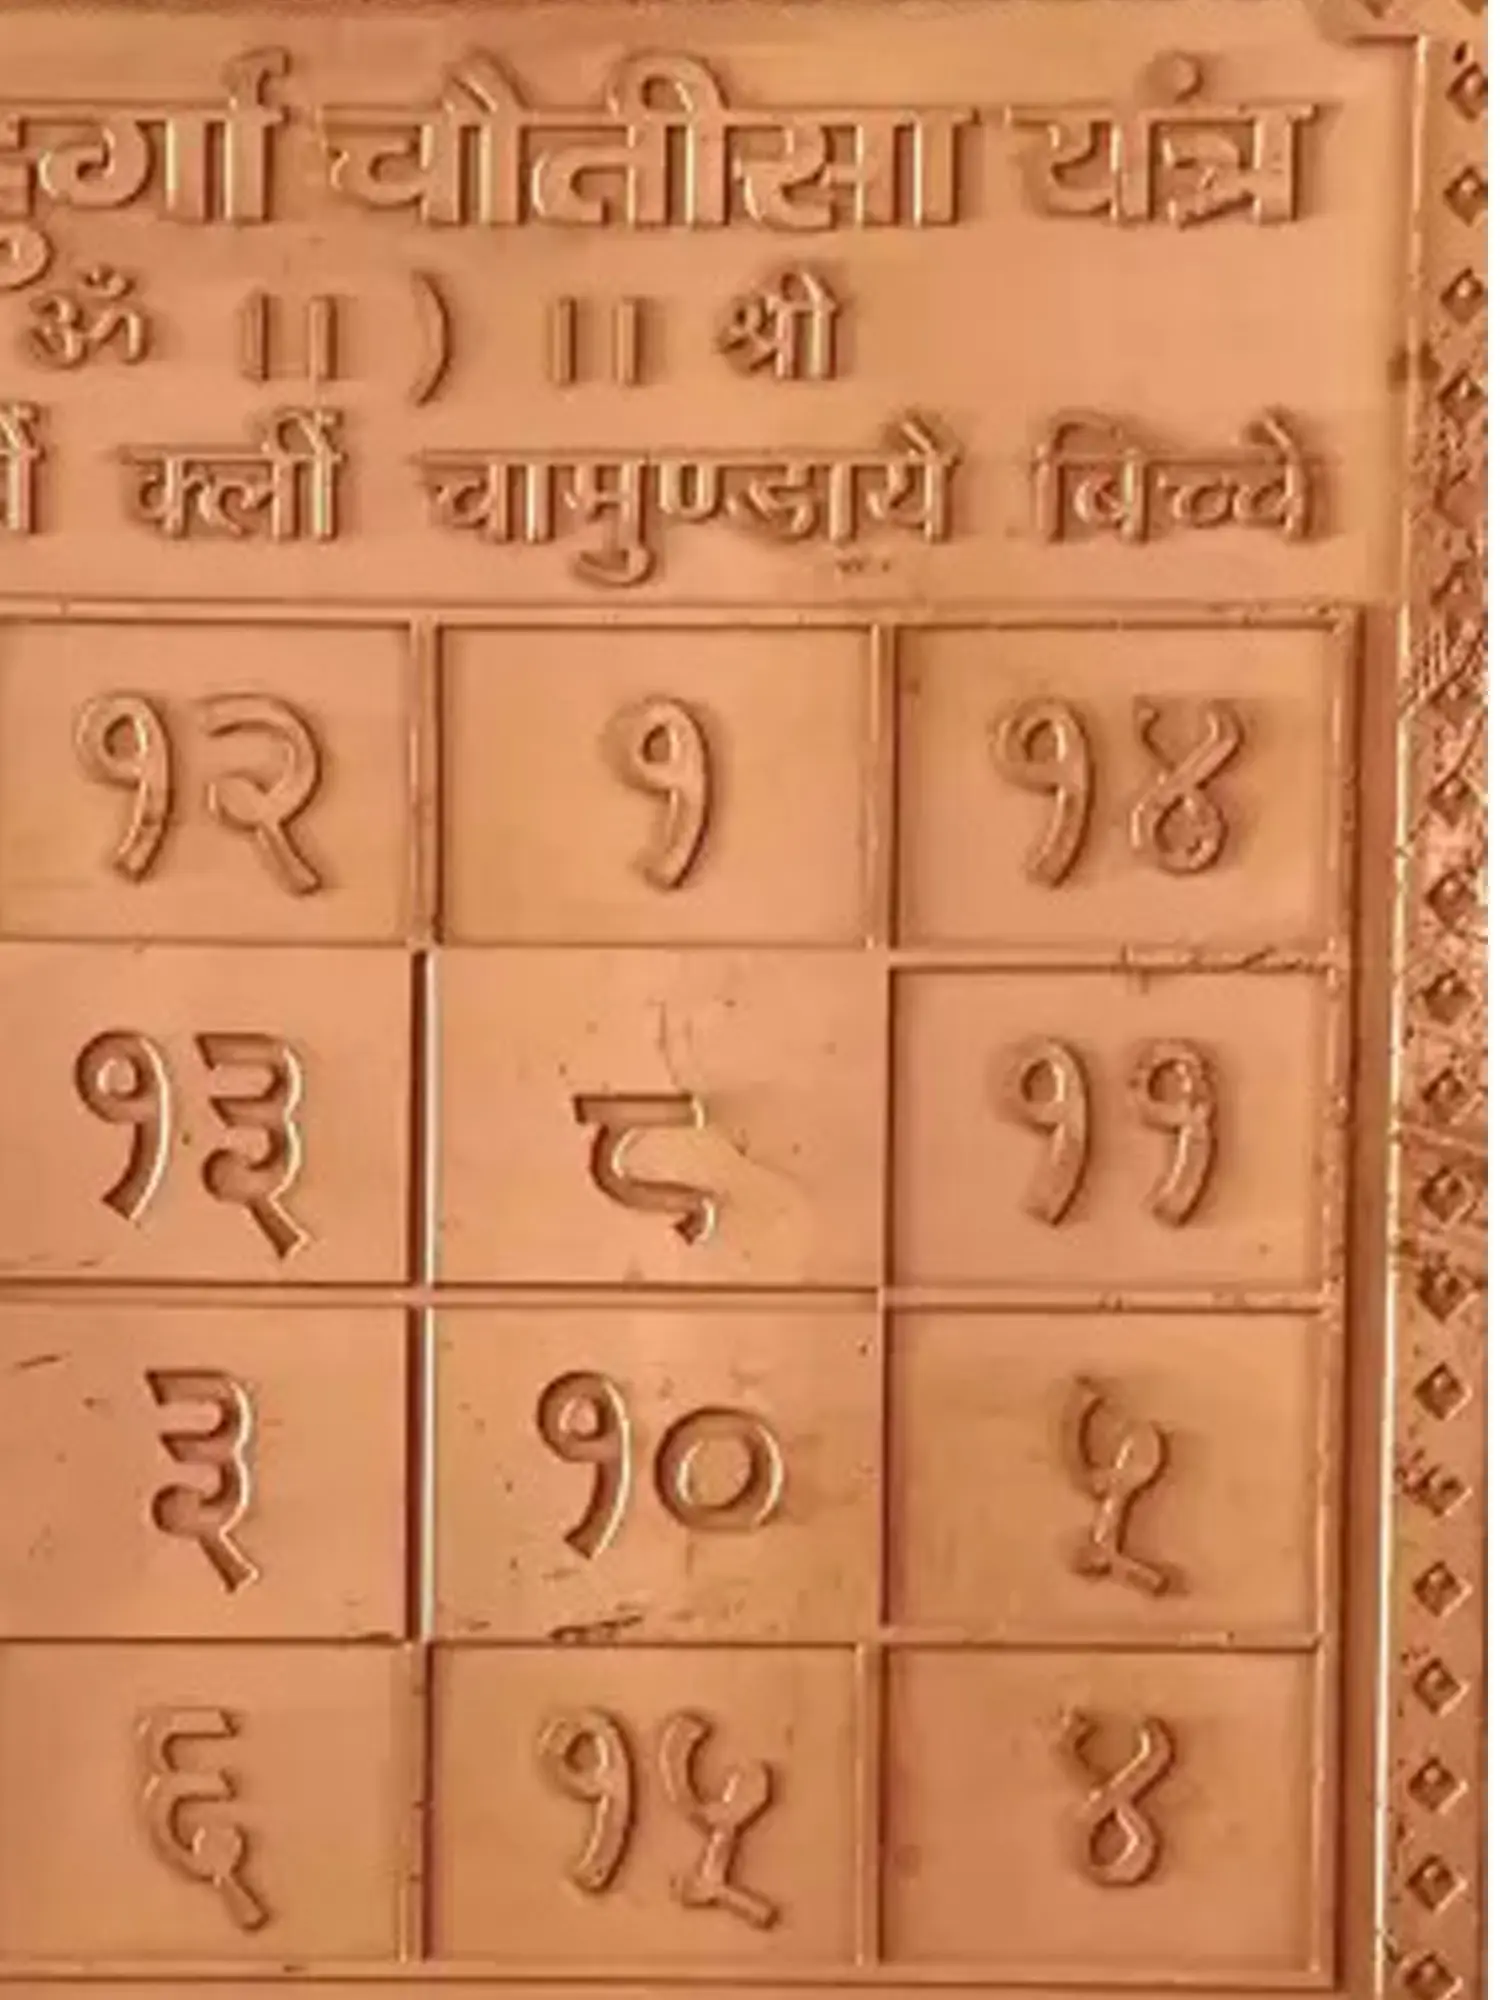 दुर्गा चौतीसा यंत्र
ॐ ।। ) ।। श्री
क्लीं चामुण्डाये बिच्चे
१२ १ १४
१३ ८ ११
३ १० ५
६ १५ ४